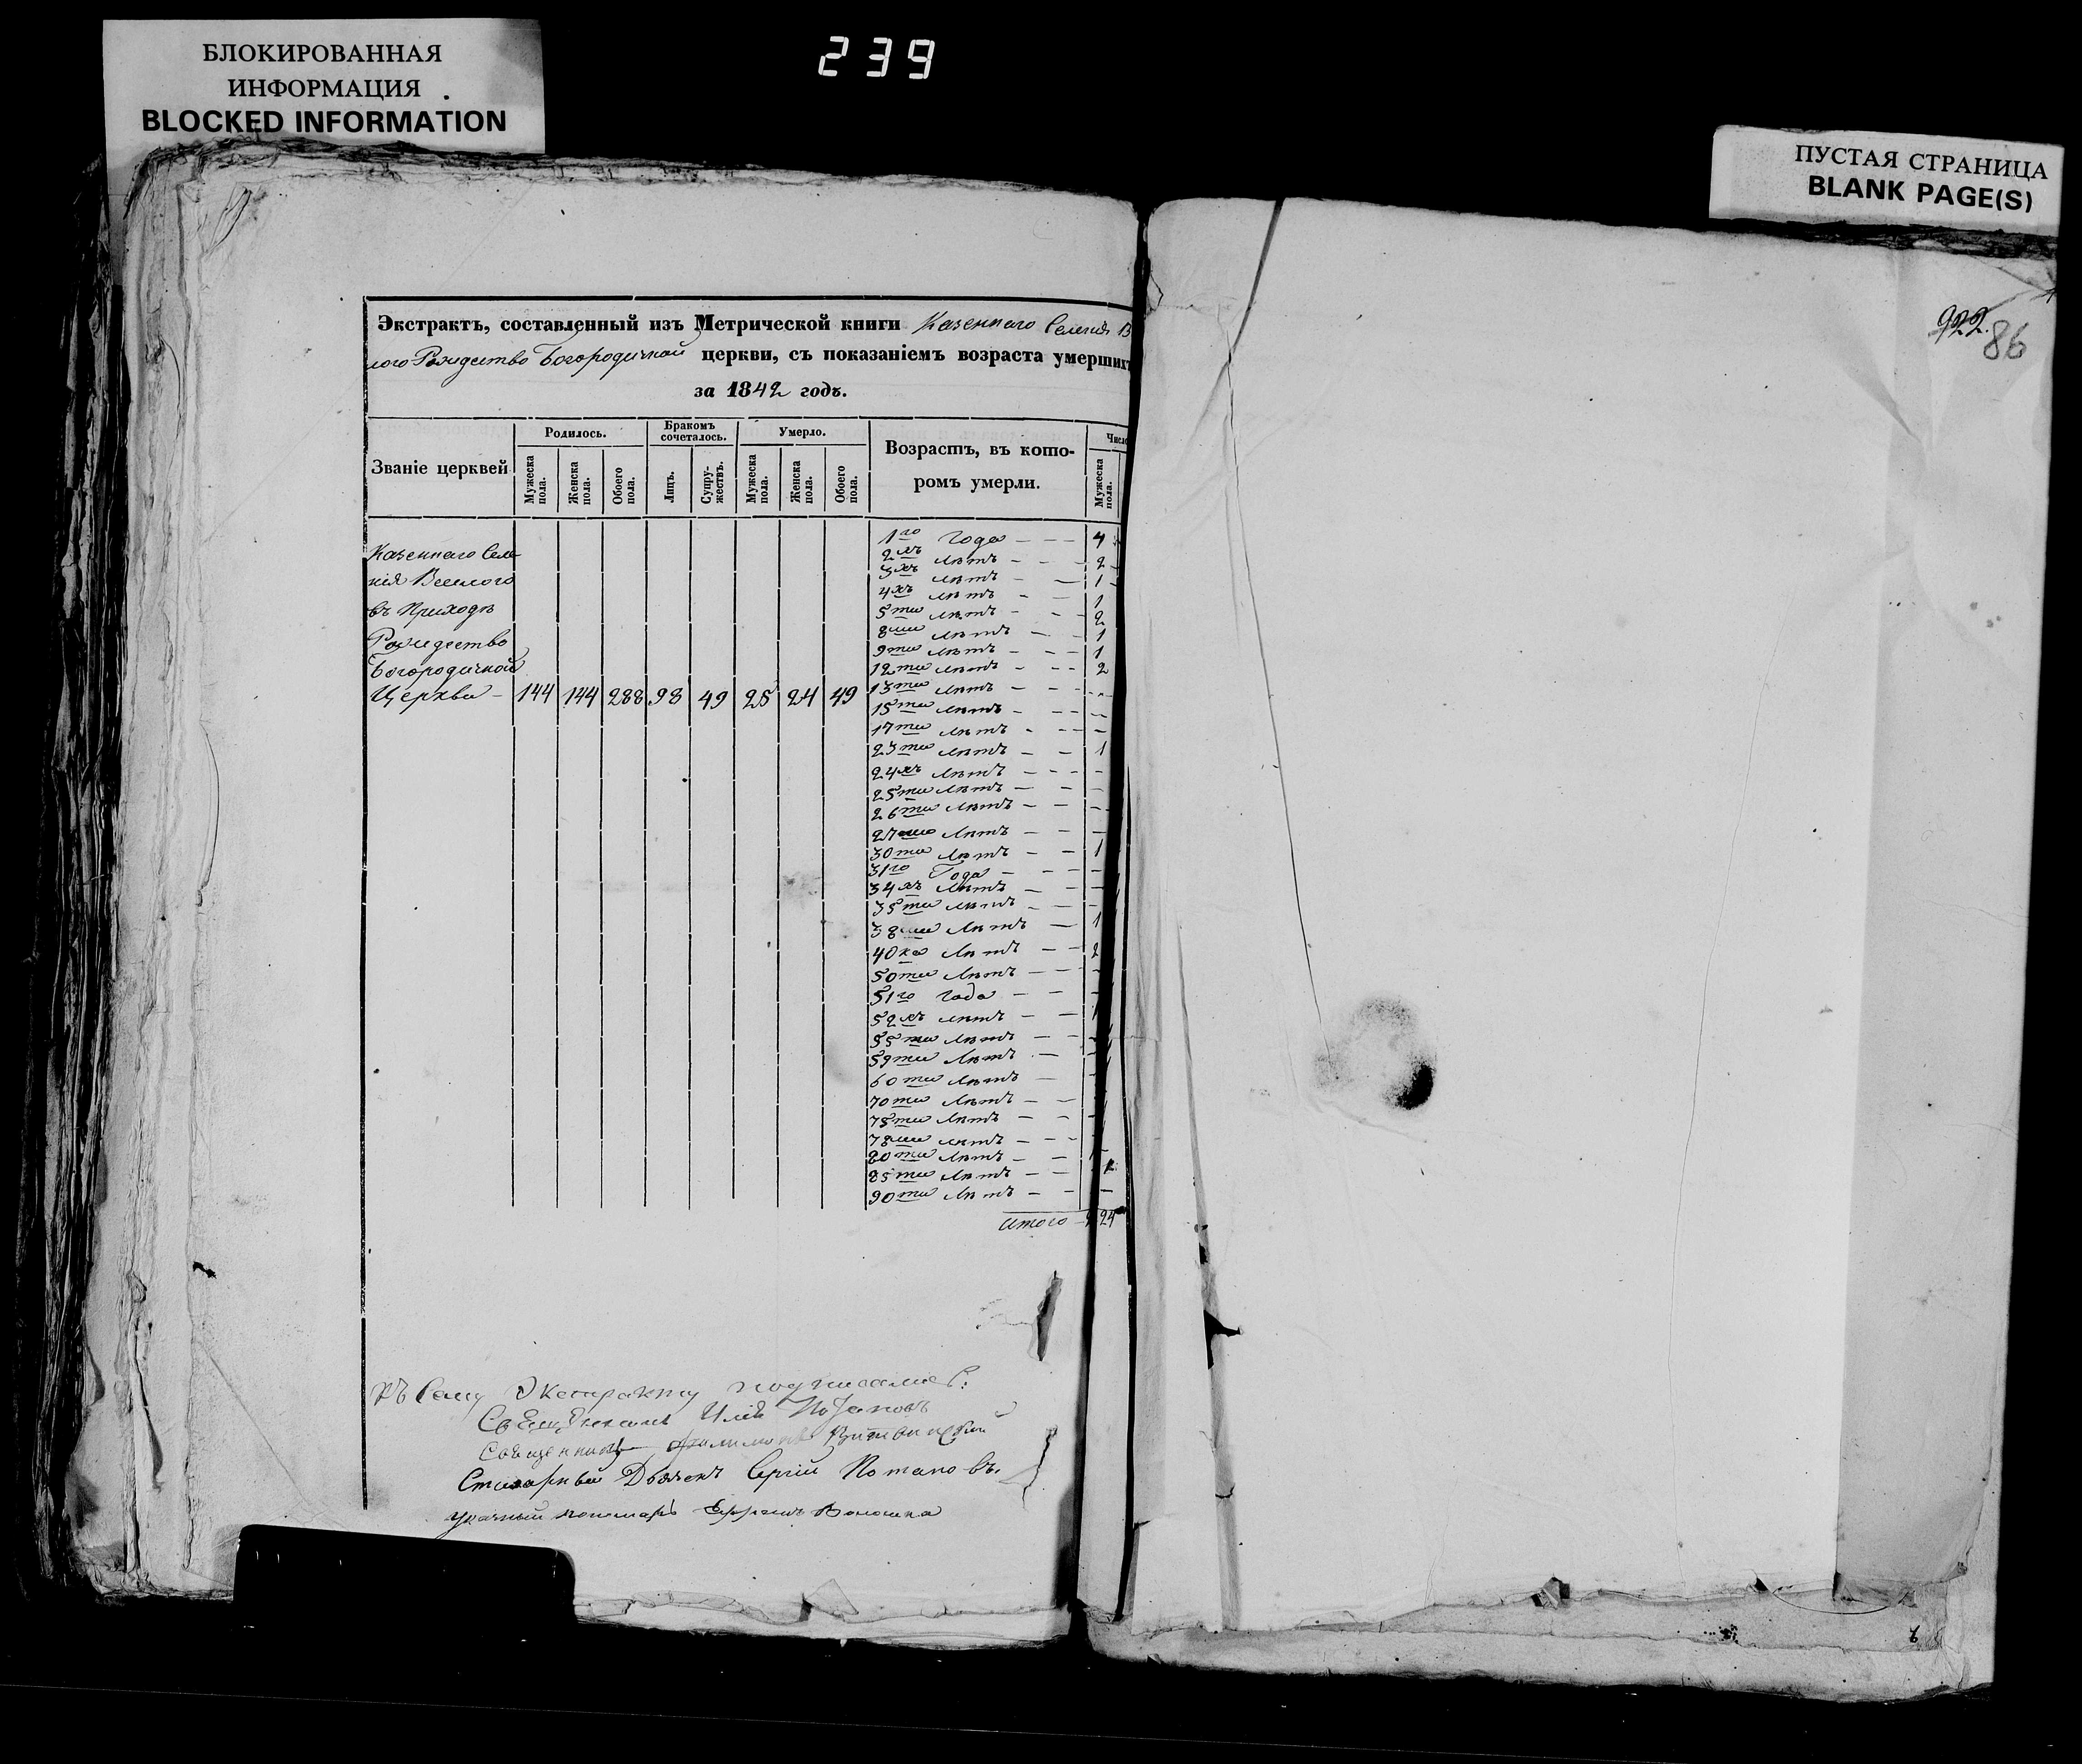 БЛОКИРОВАННАЯ
ИНФОРМАЦИЯ
BLOCKED INFORMATION
239
ПУСТАЯ СТРАНИЦА
BLANK PAGE(S)
922.
86
Экстрактъ, составленный изъ Метрической книги Казеннаго Селенія В
лого Рождество Богородичной церкви, съ показаніемъ возраста умершихъ
за 1842 годъ.
Званіе церквей
Родилось.
Мужеска пола.
Женска пола.
Обоего пола.
Бракомъ сочеталось.
Лицъ.
Супружествъ.
Умерло.
Мужеска пола.
Женска пола.
Обоего пола.
Возрастъ, въ кото-
ромъ умерли.
Число
Мужеска пола.
Казеннаго Селе-
нія Веселого
въ Приходѣ
Рождество
Богородичной
Церкви - 144 144 288 98 49 25 24 49
1го Года - - - 4
2хъ лѣтъ - - - 2
3хъ лѣтъ - - 1
4хъ лѣтъ - - 1
5ти лѣтъ - - - 2
8ми лѣтъ - - 1
9ти лѣтъ - - - 1
12ти лѣтъ - - - 2
13ти лѣтъ - - - -
15ти лѣтъ - - - -
17ти лѣтъ - - - -
23ти лѣтъ - - 1
24хъ лѣтъ - - - -
25ти лѣтъ - - -
26ти лѣтъ - - -
27ми лѣтъ - - -
30ти лѣтъ - - 1
31го Года - - - -
34хъ лѣтъ - - -
35ти лѣтъ - - -
38ми лѣтъ - 1
40ка лѣтъ - - 2
50ти лѣтъ - - - -
51го года - - -
52хъ лѣтъ - - 1
55ти лѣтъ - - -
59ти лѣтъ - -
60ти лѣтъ - -
70ти лѣтъ - -
75ти лѣтъ - - -
78ми лѣтъ - - -
80ти лѣтъ - -
85ти лѣтъ - -
90ти лѣтъ - - -
итого
Къ сему Экстракту подписались:
Священникъ Илія
Священникъ
Стихарный Дьячекъ Сергій Потаповъ.
Указный пономарь Ефремъ Волошка